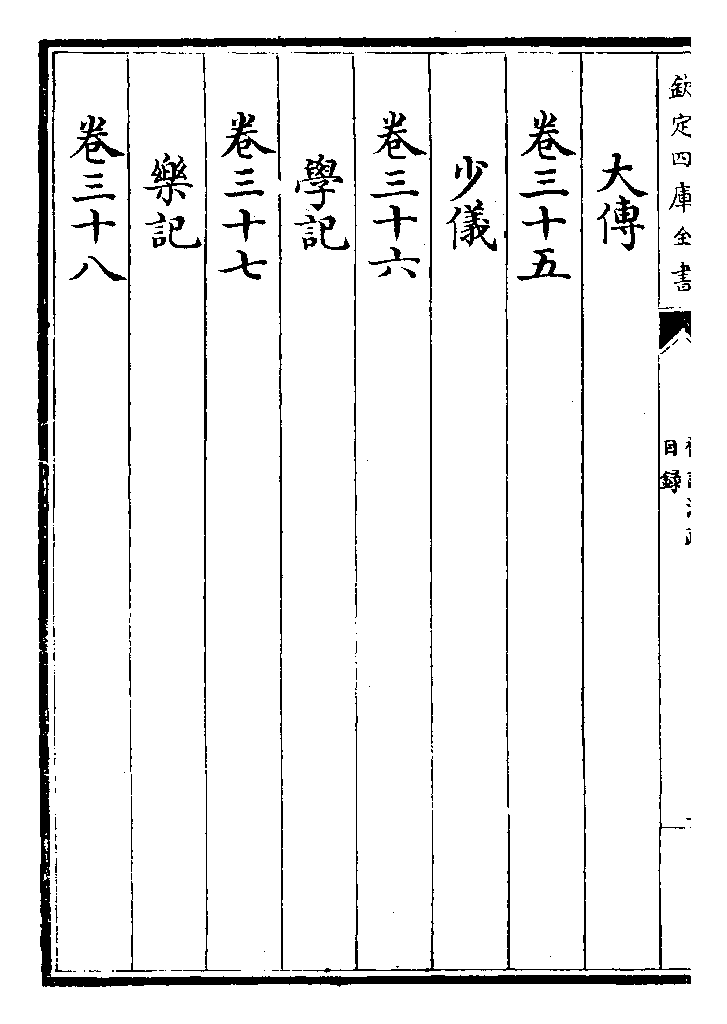 欽定四庫全書
目録
大傳
卷三十五
少儀
卷三十六
學記
卷三十七
樂記
卷三十八